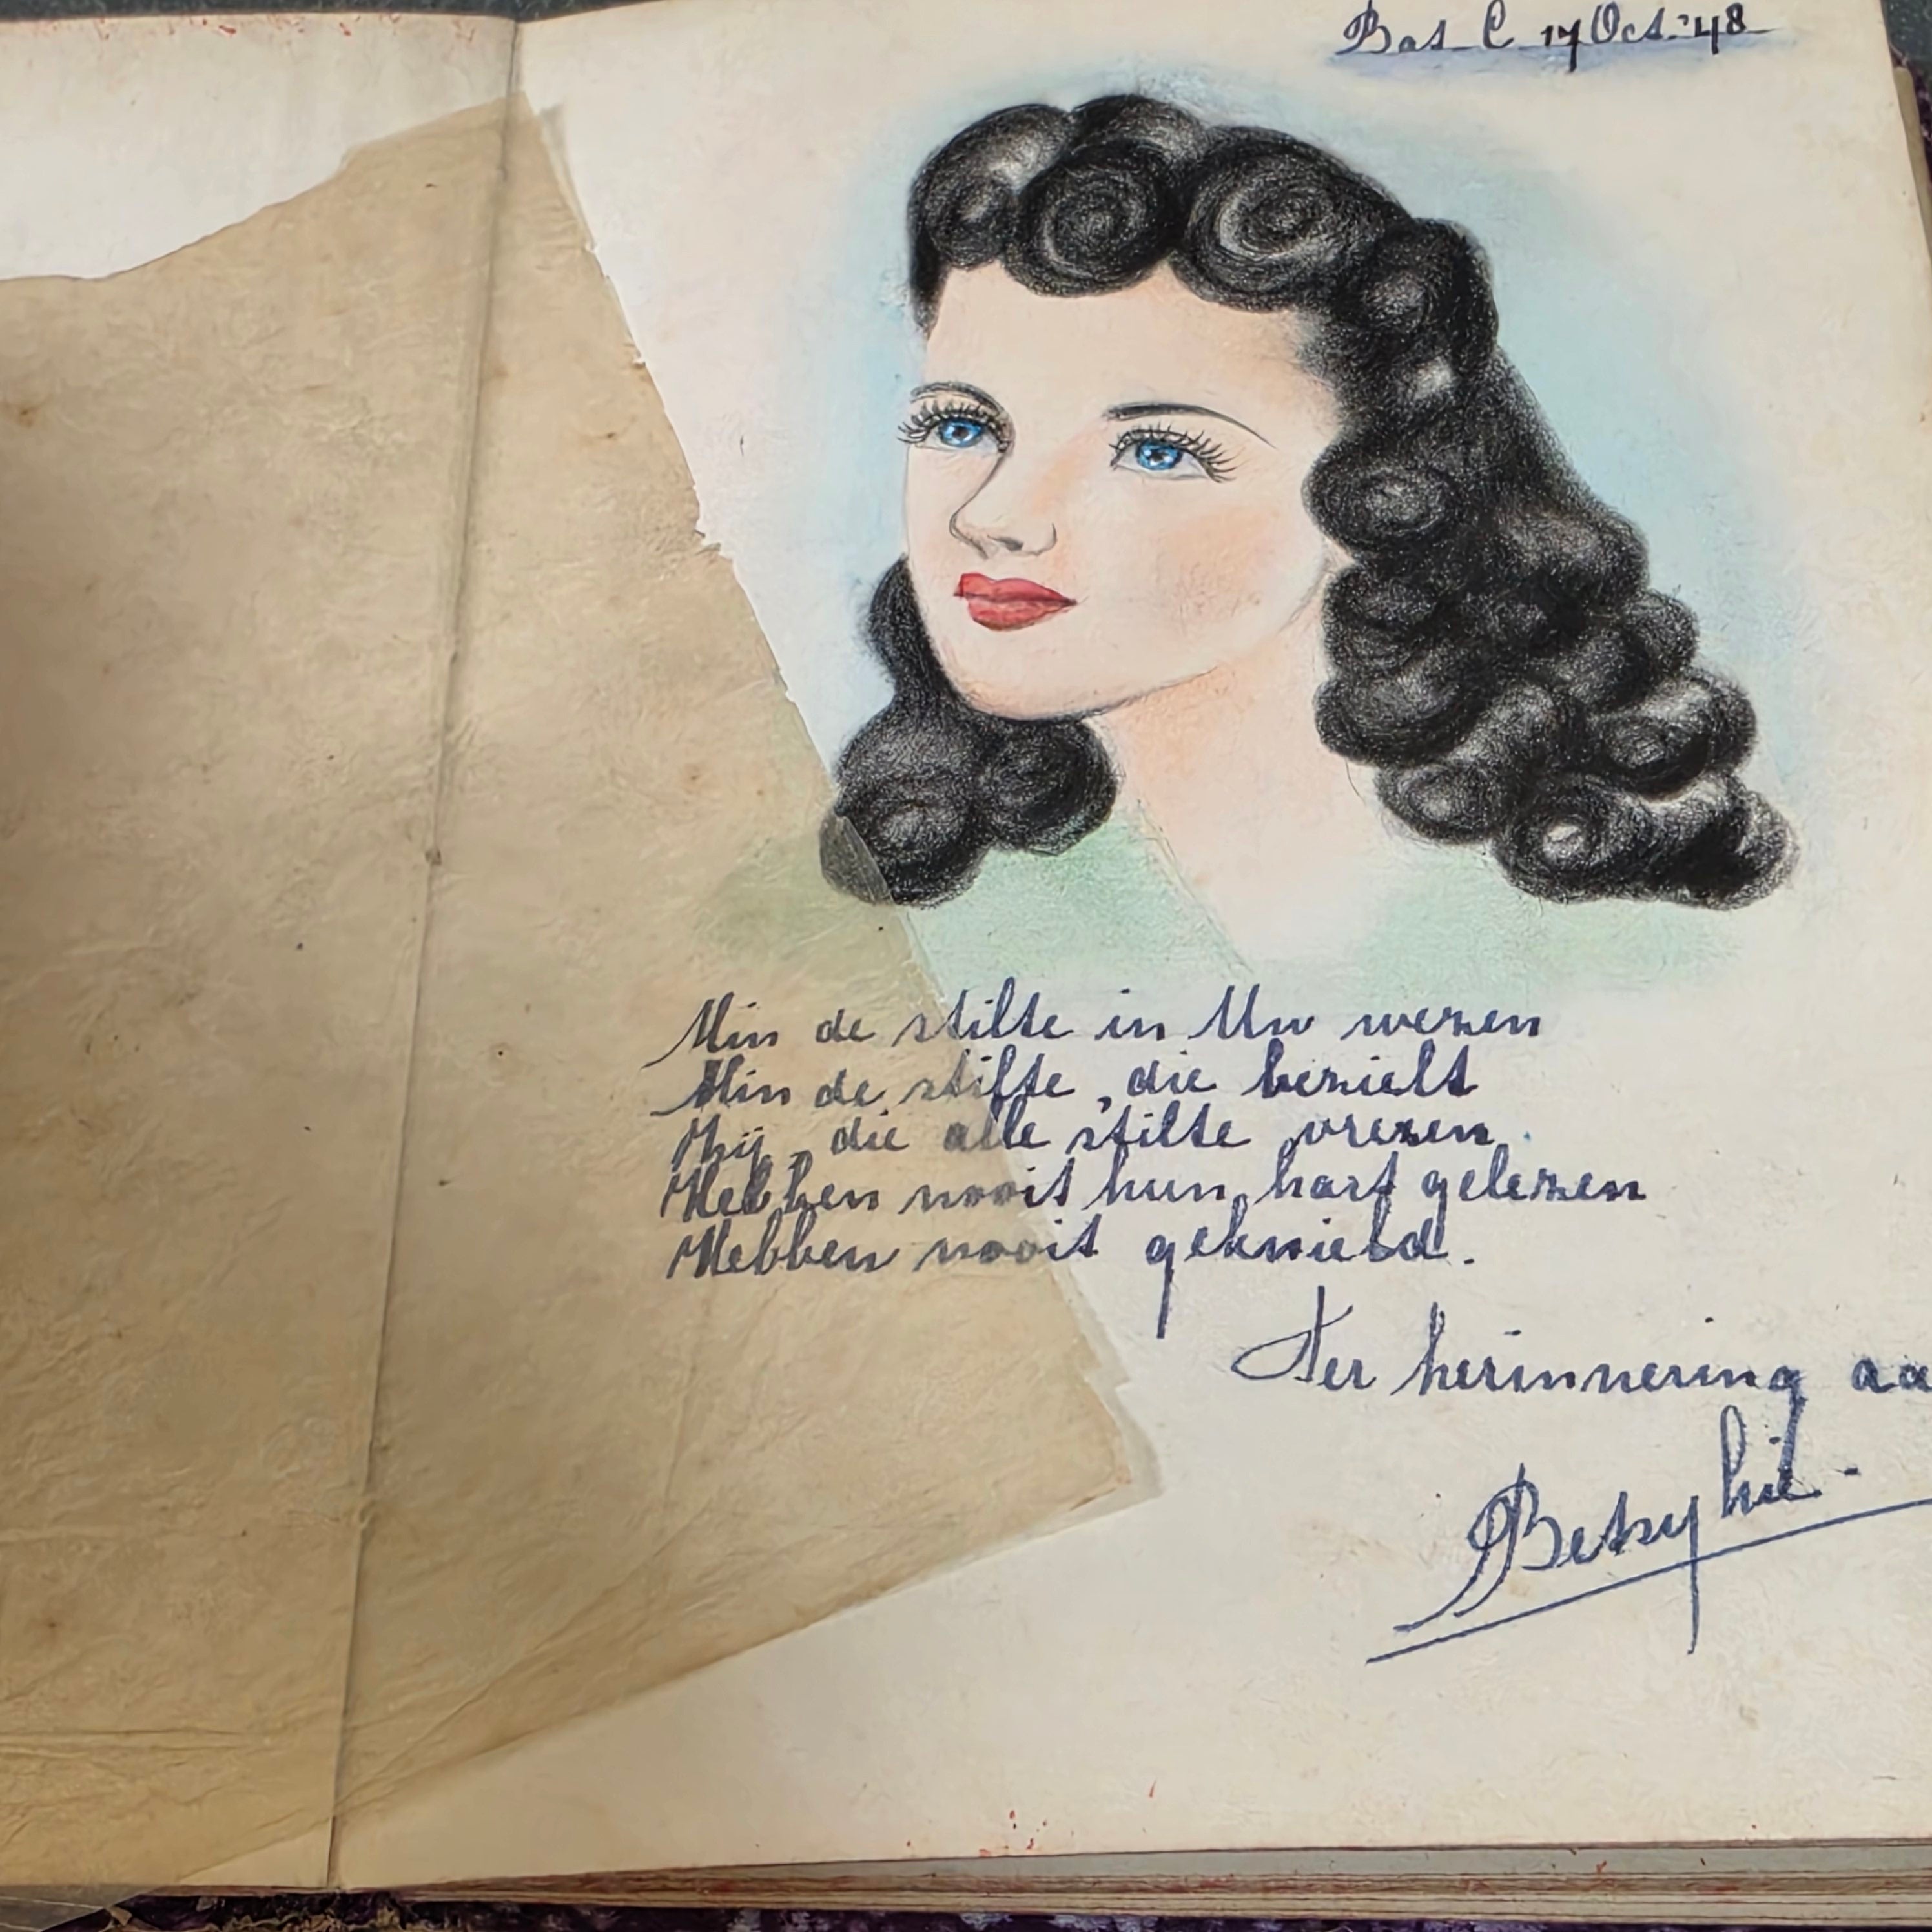 Bat. C. 17 Oct. '48
Min de stilte in Uw wezen
Min de stilte, die bezielt
Zij, die alle stilte vrezen
Hebben nooit hun hart gelezen
Hebben nooit geknield.
Ter herinnering aa
Betsy